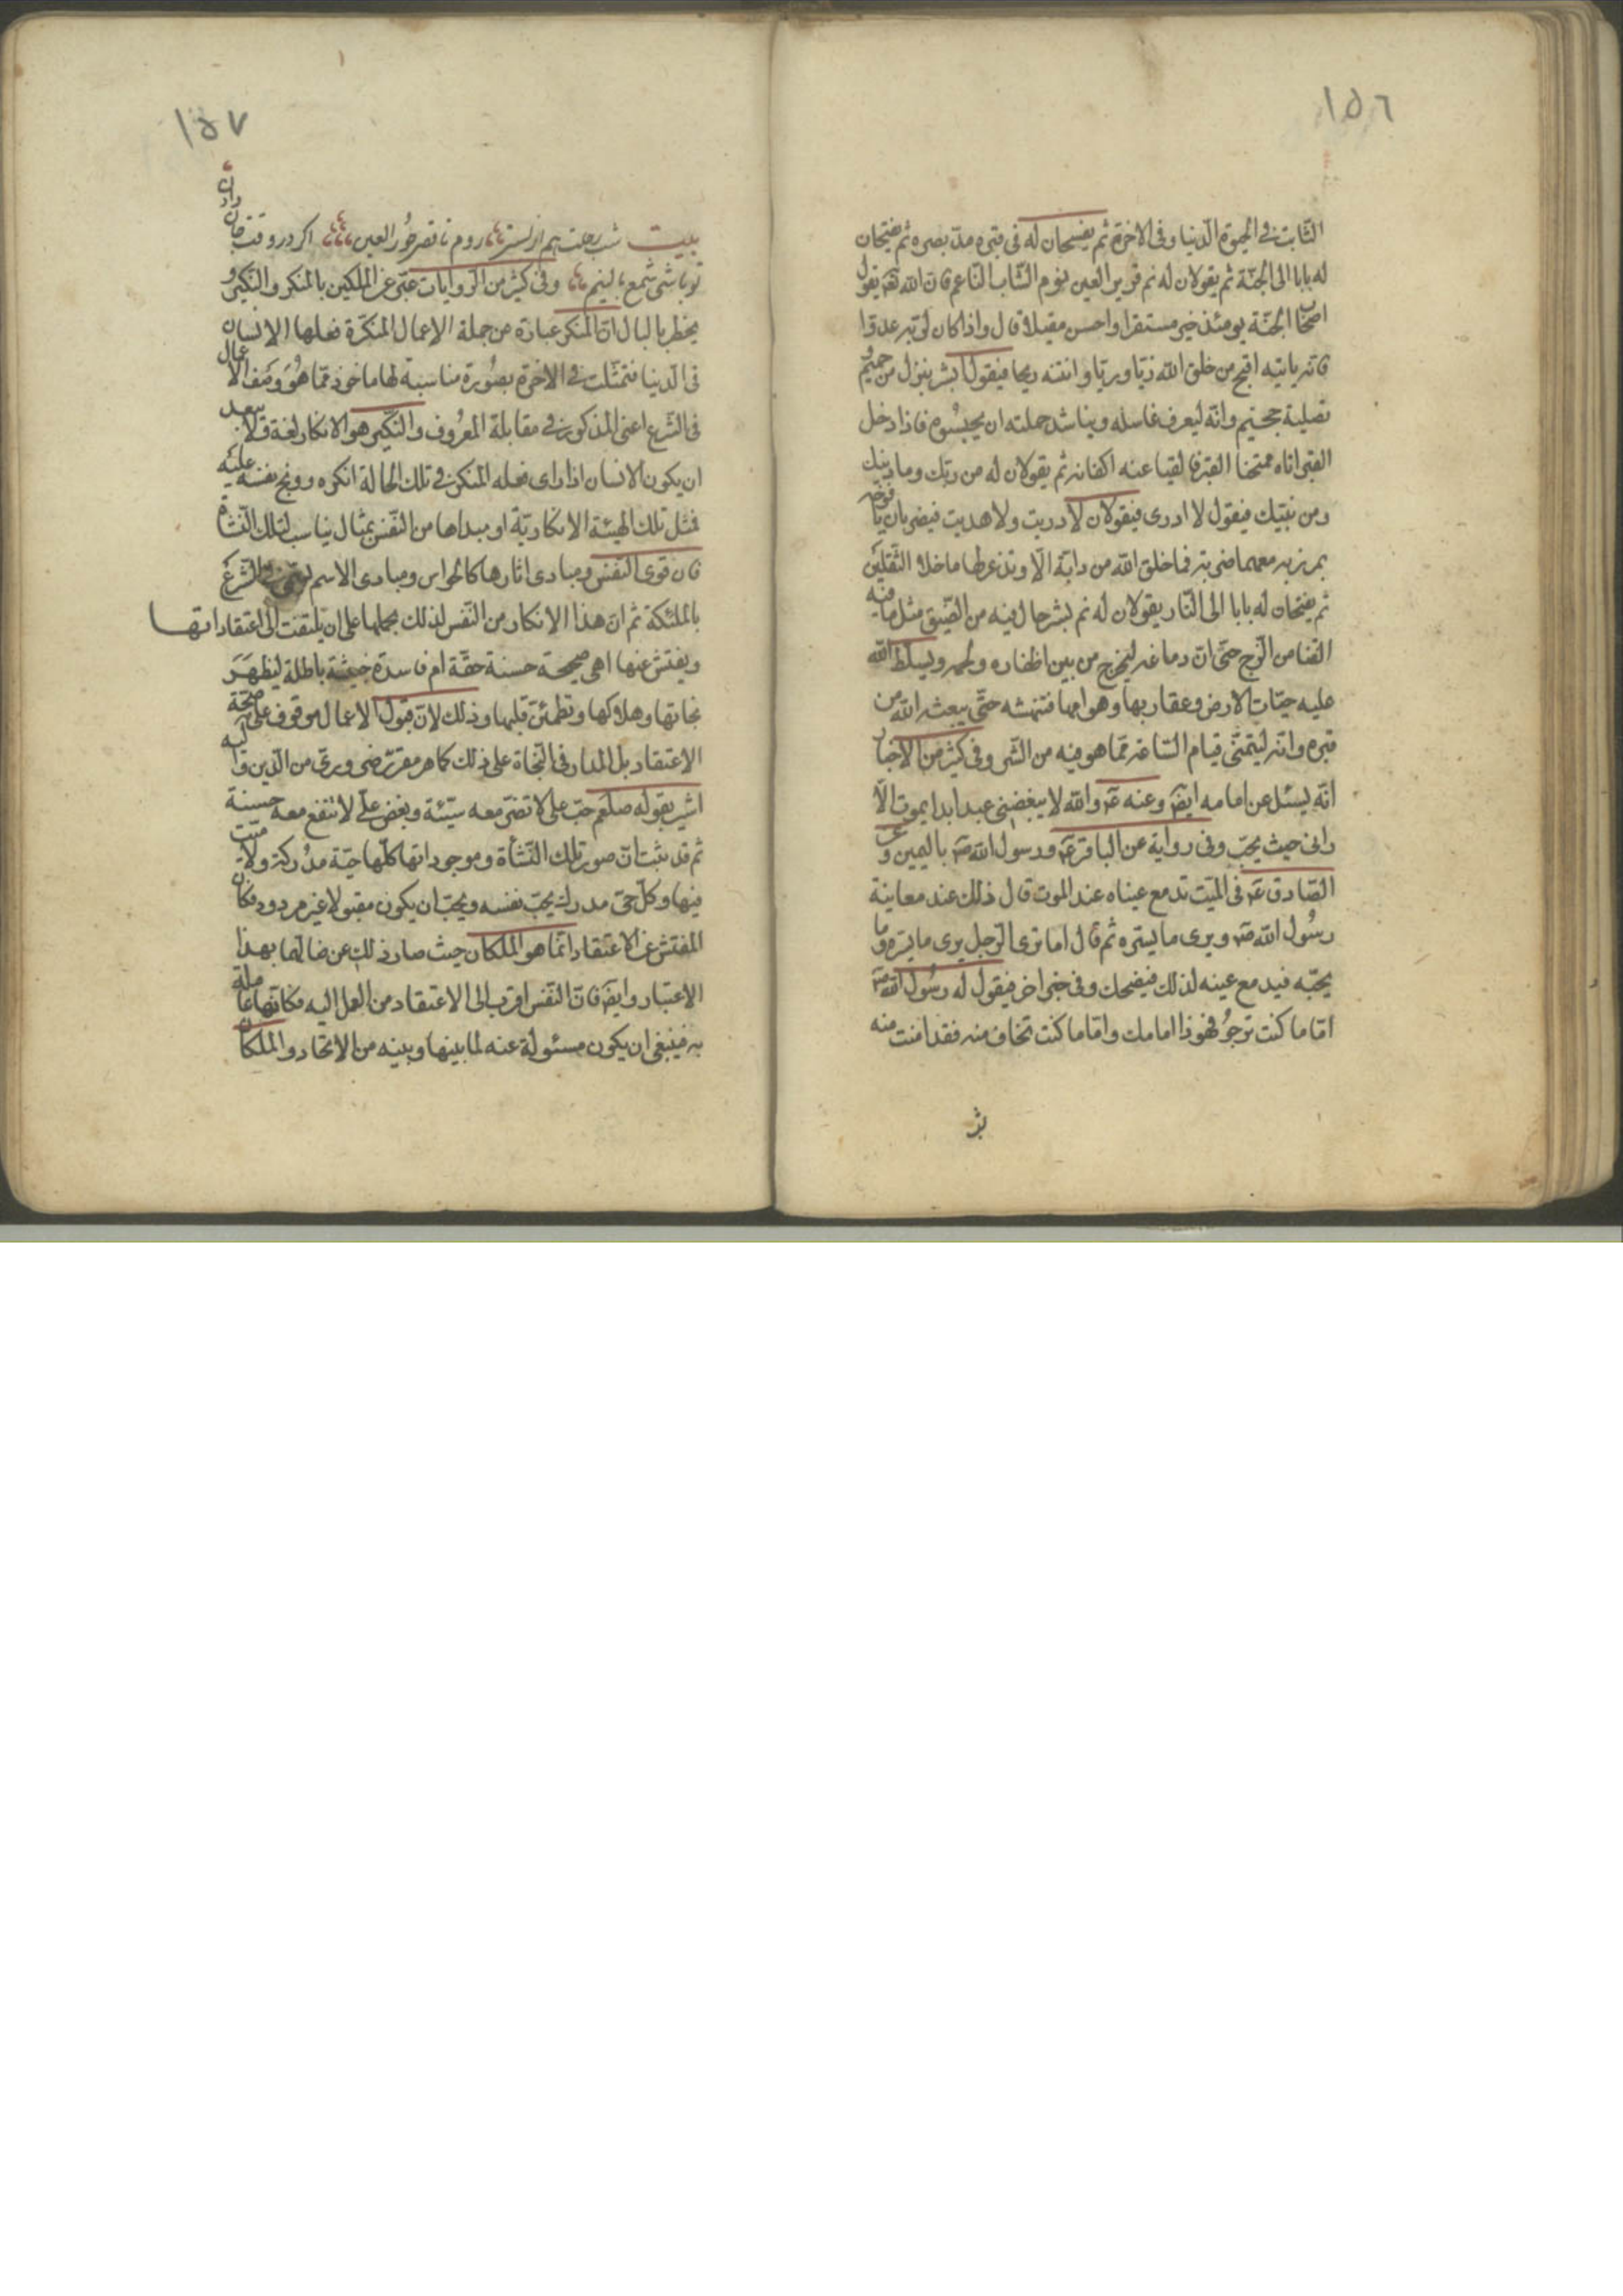 ١٥٦
الثابت فى الحيوة الدنيا وفى الاخرة ثم يفسحان له فى قبره مدّ بصره ثم يفتحان
له بابا الى الجنّة ثم يقولان له نم قرير العين نوم الشّاب النّاعم فان الله تعه يقول
اصحاب الجنّة يومئذ خير مستقرا واحسن مقيلا قال واذا كان لربّه عدوّا
فانه ياتيه اقبح من خلق الله زيّا وريّا وانتنه ريحا فيقول ابشر بنزل من حميم و
تصلية جحيم وانّه ليعرف غاسله ويناشد حملته ان يحبسوه فاذا دخل
القبر اتاه ممتحنا القبر فالقيا عنه اكفانه ثم يقولان له من ربّك وما دينك
ومن نبيّك فيقول لا ادرى فيقولان لا دريت ولا هديت فيضربان يافوخه
بمرزبه معهما ضربة فما خلق الله من دابّة الّا وتذعر لها ما خلا الثّقلين
ثم يفتحان له بابا الى النّار يقولان له نم بشر حال فيه من الضّيق مثل ما فيه
القنا من الزّج حتّى انّ دماغه ليخرج من بين اظفاره ولحمه ويسلّط الله
عليه حيّات الارض وعقاربها وهوامها فتنهشه حتّى يبعثه الله من
قبره وانّه ليتمنّى قيام السّاعة ممّا هو فيه من الشّر وفى كثير من الاخبار
انّه يسئل عن امامه ايضَ وعنه عَم والله لا يبغضنى عبد ابدا يموت الّا
رانى حيث يحبّ وفى رواية عن الباقر عَم ورسول الله صَ باليمين وعن
الصّادق عَم فى الميّت تدمع عيناه عند الموت قال ذلك عند معاينة
رسُول الله صَ ويرى ما يسّره ثم قال اما ترى الرّجل يرى ما يسّره وما
يحبّه فيدمع عينه لذلك فيضحك وفى خبر اخر فيقول له رسُول الله صَ
امّا ما كنت ترجوُ فهوذا امامك وامّا ما كنت تخاف منه فقد امنت منه
١٥٧
بيت شب رحلت هم از بستر روم تا قصر حُور العين اگر در وقت جان دادن
تو باشى شمع بالينم وفى كثير من الرّوايات عبّر عن الملكين بالمنكر والنّكير و
يخطر بالبال انّ المنكر عبارة من جملة الاعمال المنكرة فعلها الانسان
فى الدنيا فتمثّلت فى الاخرة بصُورة مناسبة لها ماخوذ ممّا هُوَ وصف الاعمال
فى الشّرع اعنى المذكور فى مقابلة المعرُوف والنّكير هو الانكار لغة ولا يبعد
ان يكون الانسان اذا راى فعله المنكر فى تلك الحالة انكره ووبخ نفسه عليه
فتمثل تلك الهيئة الانكاريّة او مبداها من النّفس بمثال يناسب لتلك النّشاة
فان قوى النّفس ومبادى اثارها كالحواس ومبادى الاسم فى الشّرع
بالملئكة ثم انّ هذا الانكار من النّفس لذلك يحملها على ان يلتفت الى اعتقاداتها
ويفتش عنها اهى صحيحة حسنة حقّة ام فاسدة خبيثة باطلة ليظهَرَ
نجاتها وهلاكها وتطمئنّ قلبها وذلك لانّ قبول الاعمال موقوف على صحّة
الاعتقاد بل المدار فى النّجاة على ذلك كما هو مقرّر ضرورىّ من الدّين واليه
اشير بقوله صلعم حبّ علىّ لا تضرّ معه سيّئة وبغض علىّ لا تنفع معه حسنة
ثم قد ثبت انّ صور تلك النّشأة وموجوداتها كلّها حيّة مدُركة ولا ميّت
فيها وكلّ حىّ مدرك يحبّ نفسه ويحبّ ان يكون مقبولا غير مردود فكان
المفتش عن الاعتقاد انّما هو الملكان حيث صار ذلك عن ضالّهما بهذا
الاعتبار وايضَ فانّ النّفس اقرب الى الاعتقاد من العمل اليه فكانّها عاملة
به فينبغى ان يكون مسئولة عنه لما بينها وبينه من الاتحاد والملكان